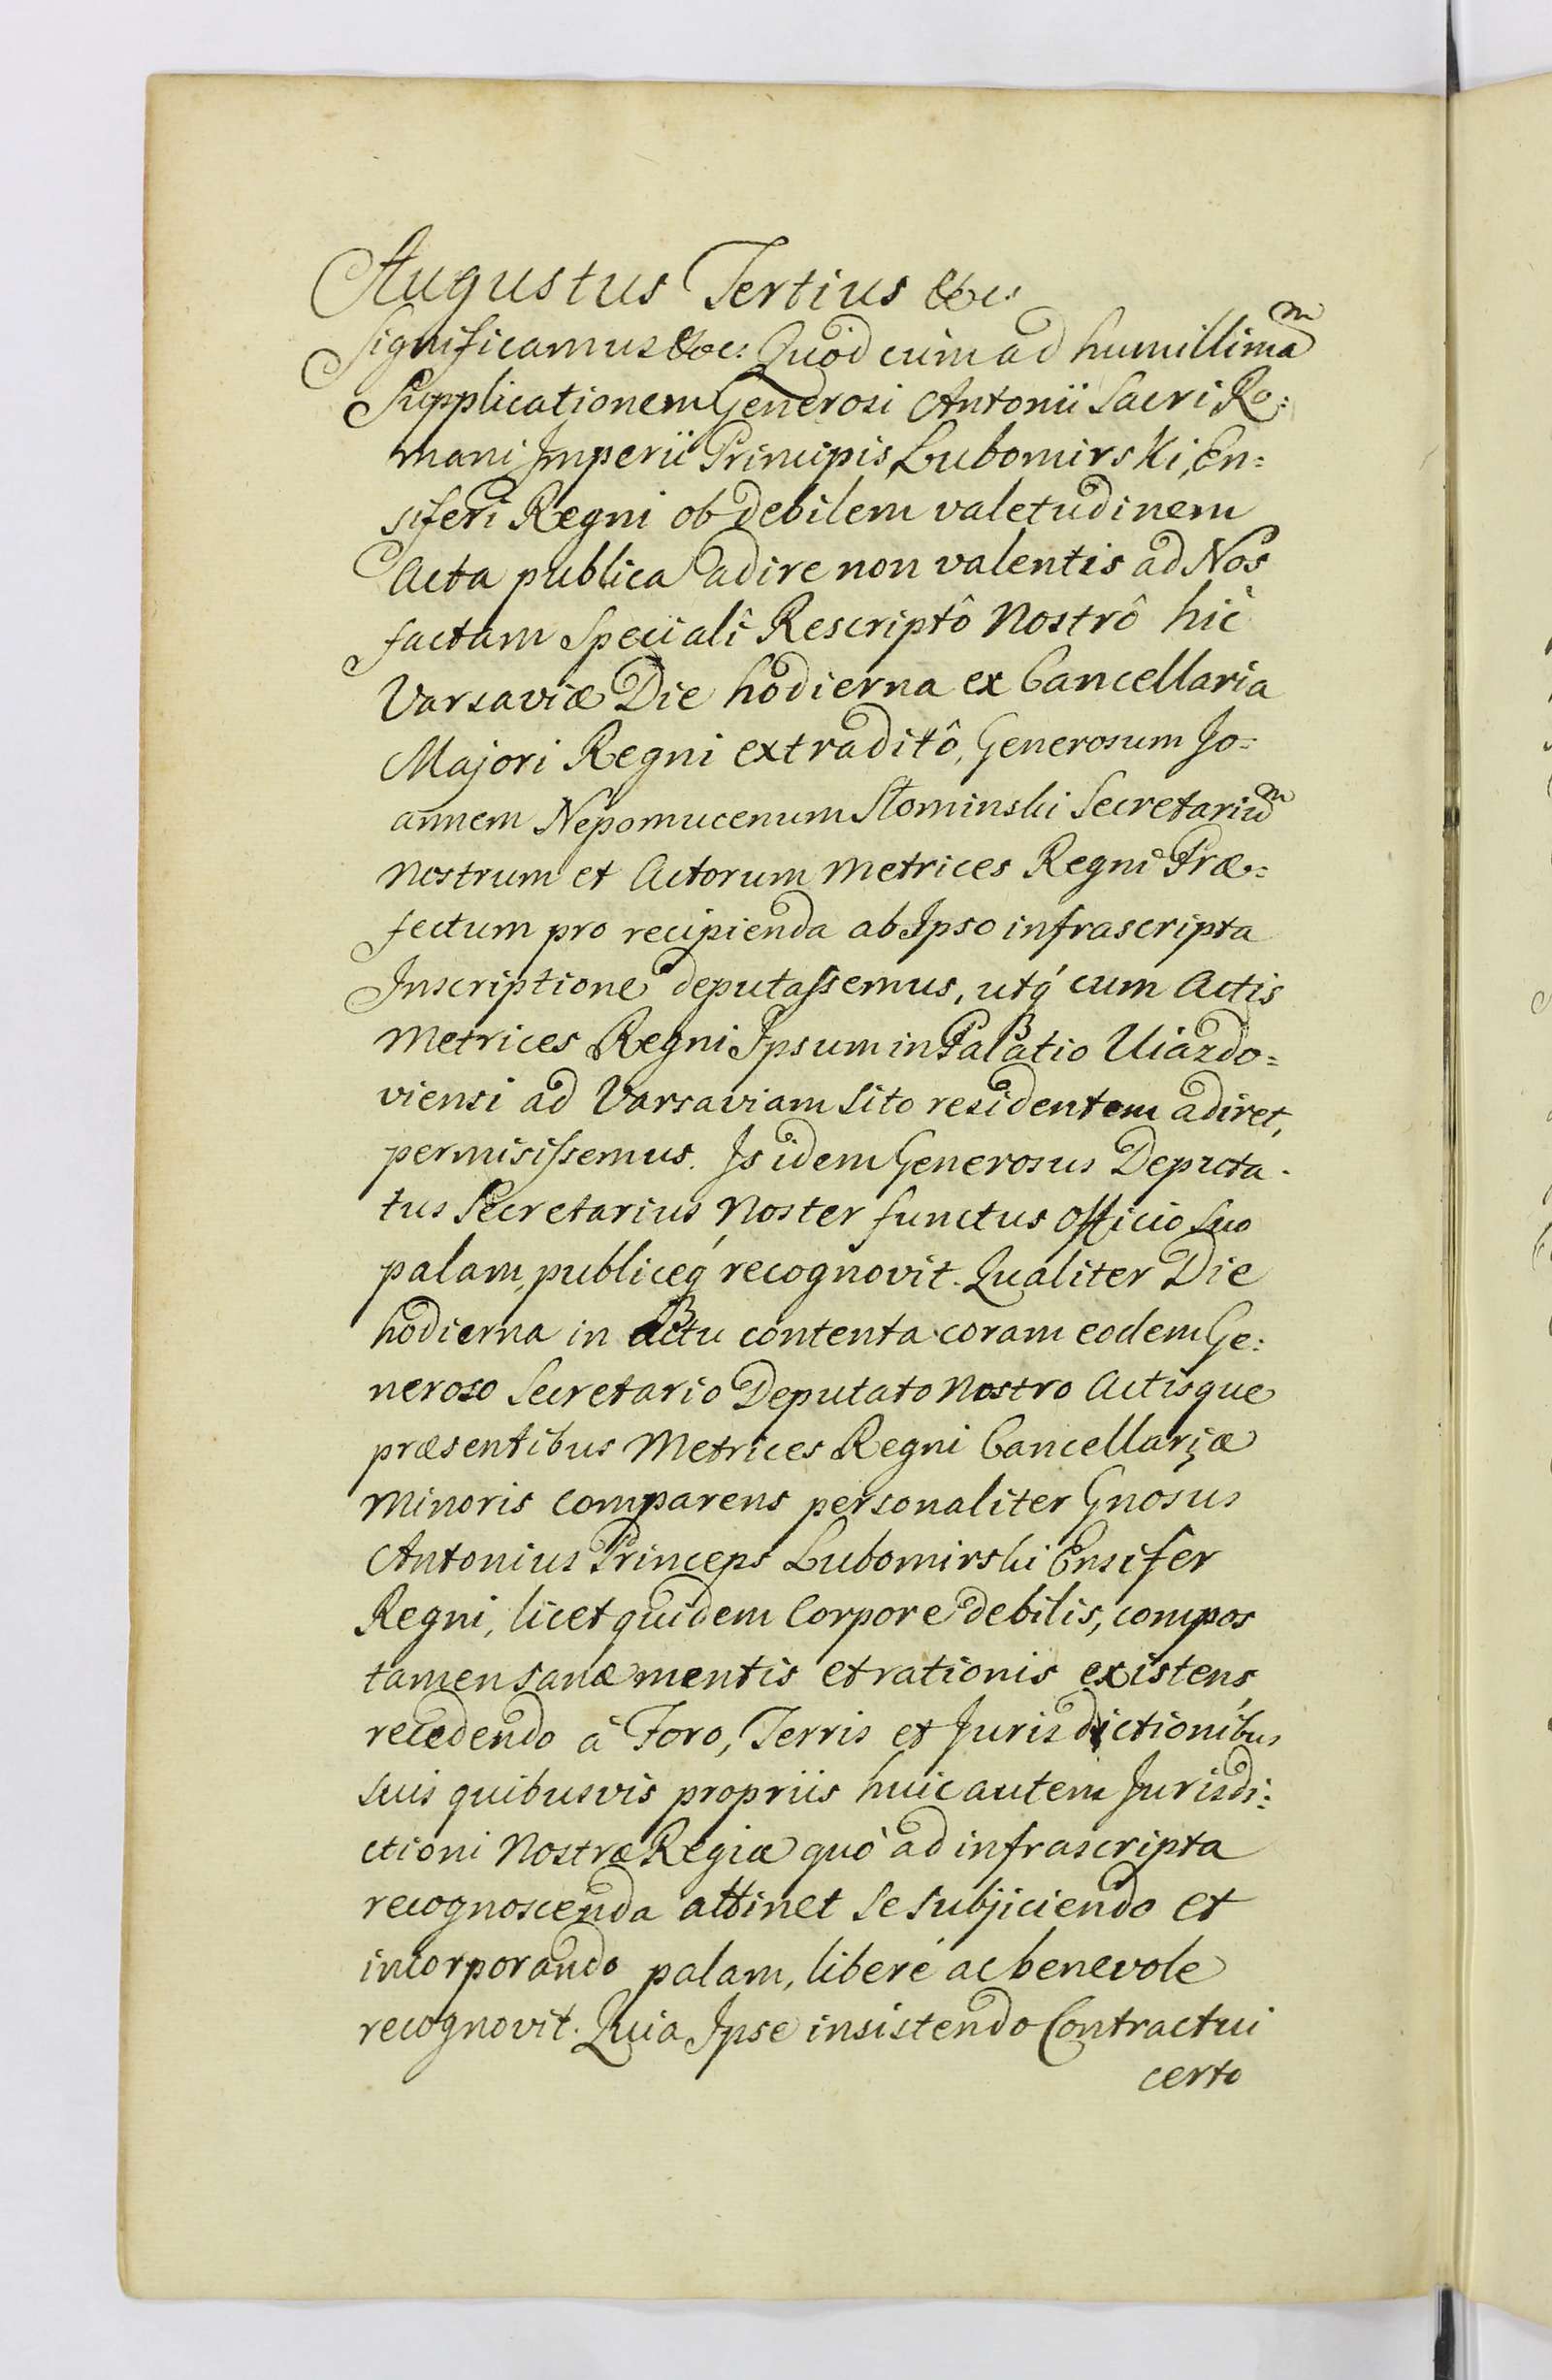 Augustus Tertius &c:
Significamus &c: Quòd cùm ad humillimã
Supplicationem Generosi Antonii Sacri Ro:
mani Imperii Principis Lubomirski, En=
siferi Regni ob debilem valetudinem
Acta publica adire non valentis ad Nos
factam Speciali Rescriptô Nostrô hic
Varsaviæ Die hodierna ex Cancellaria
Majori Regni extraditô, Generosum Jo=
annem Nepomucenum Słominski Secretariũ
Nostrum et Actorum Metrices Regni Præ=
fectum pro recipienda ab Ipso infrascripta
Inscriptione deputassemus, utq́ cum Actis
Metrices Regni Ipsum in Palatio Uiazdo=
viensi ad Varsaviam Sito residentem adiret,
permisissemus. Is idem Generosus Deputa-
tus Secretarius Noster functus Officio Suo
palam, publiceq́ recognovit. Qualiter Die
hodierna in Actu contenta coram eodem Ge:
neroso Secretario Deputato Nostro Actisque
præsentibus Metrices Regni Cancellariæ
Minoris comparens personaliter Gnosus
Antonius Princeps Lubomirski Ensifer
Regni, licet quidem Corpore debilis, compos
tamen sanæ mentis et rationis existens,
recedendo à Foro, Terris et Jurisdictionibus
suis quibusvis propriis huic autem Jurisdi:
ctioni Nostræ Regiæ quò ad infrascripta
recognoscenda attinet se subjiciendo et
incorporando palam, liberè ac benevole
recognovit. Quia Ipse insistendo Contractui
certo